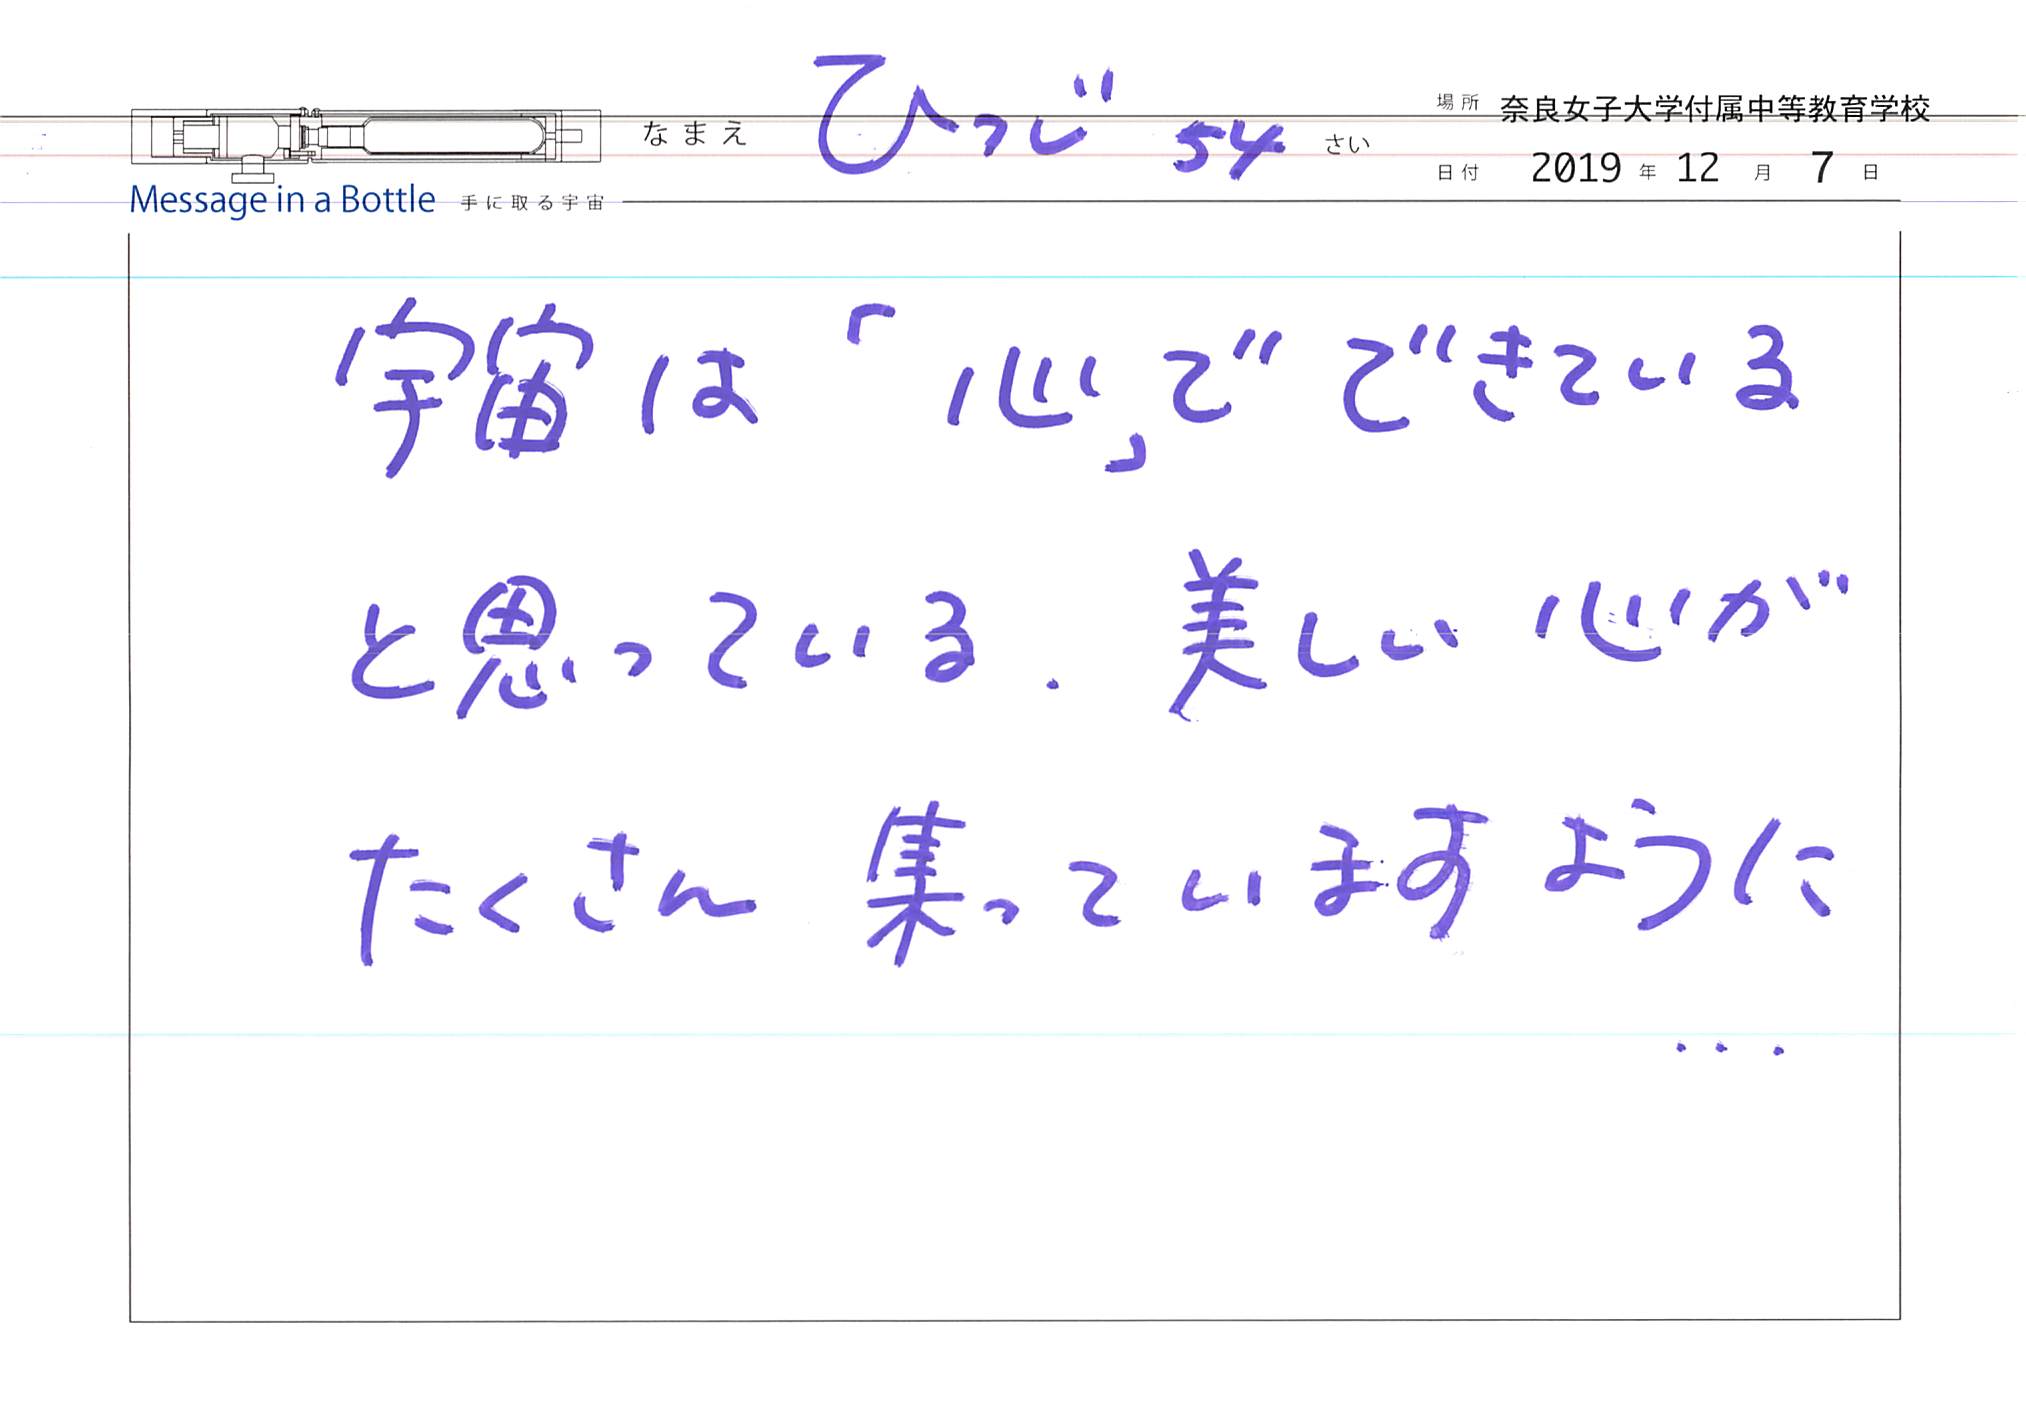 なまえ ひつじ 54 さい
場所 奈良女子大学付属中等教育学校
日付 2019 年 12 月 7 日
Message in a Bottle 手に取る宇宙
宇宙は「心」でできている
と思っている. 美しい心が
たくさん 集っていますように
...